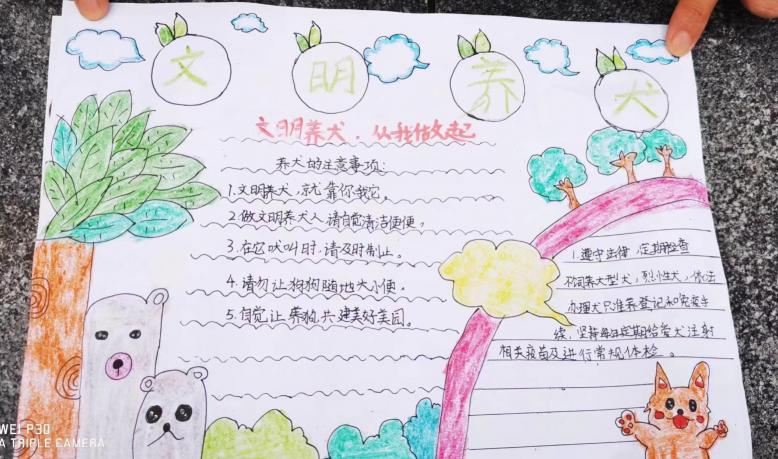 文明养犬
文明养犬，从我做起
养犬的注意事项:
1.文明养犬，就靠你我它。
2.做文明养犬人，请自觉清洁便便。
3.在它吠叫时，请及时制止。
4.请勿让狗狗随地大小便。
5.自觉让养狗，共建美好美园。
1.遵守法律，定期检查
不饲养大型犬，烈性犬，依法
办理犬只准养登记和免疫手
续，坚持每年定期给爱犬注射
相关疫苗及进行常规体检。
WEI P30
A TRIPLE CAMERA